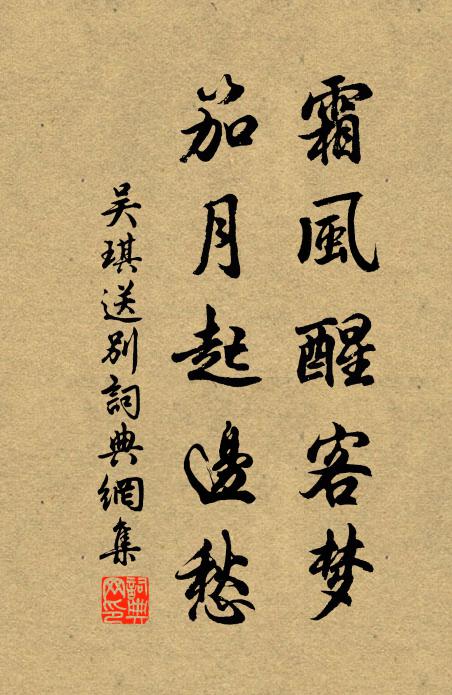 霜風醒客梦
笳月起邊愁
吴琪送别詞典網集
詞典网印